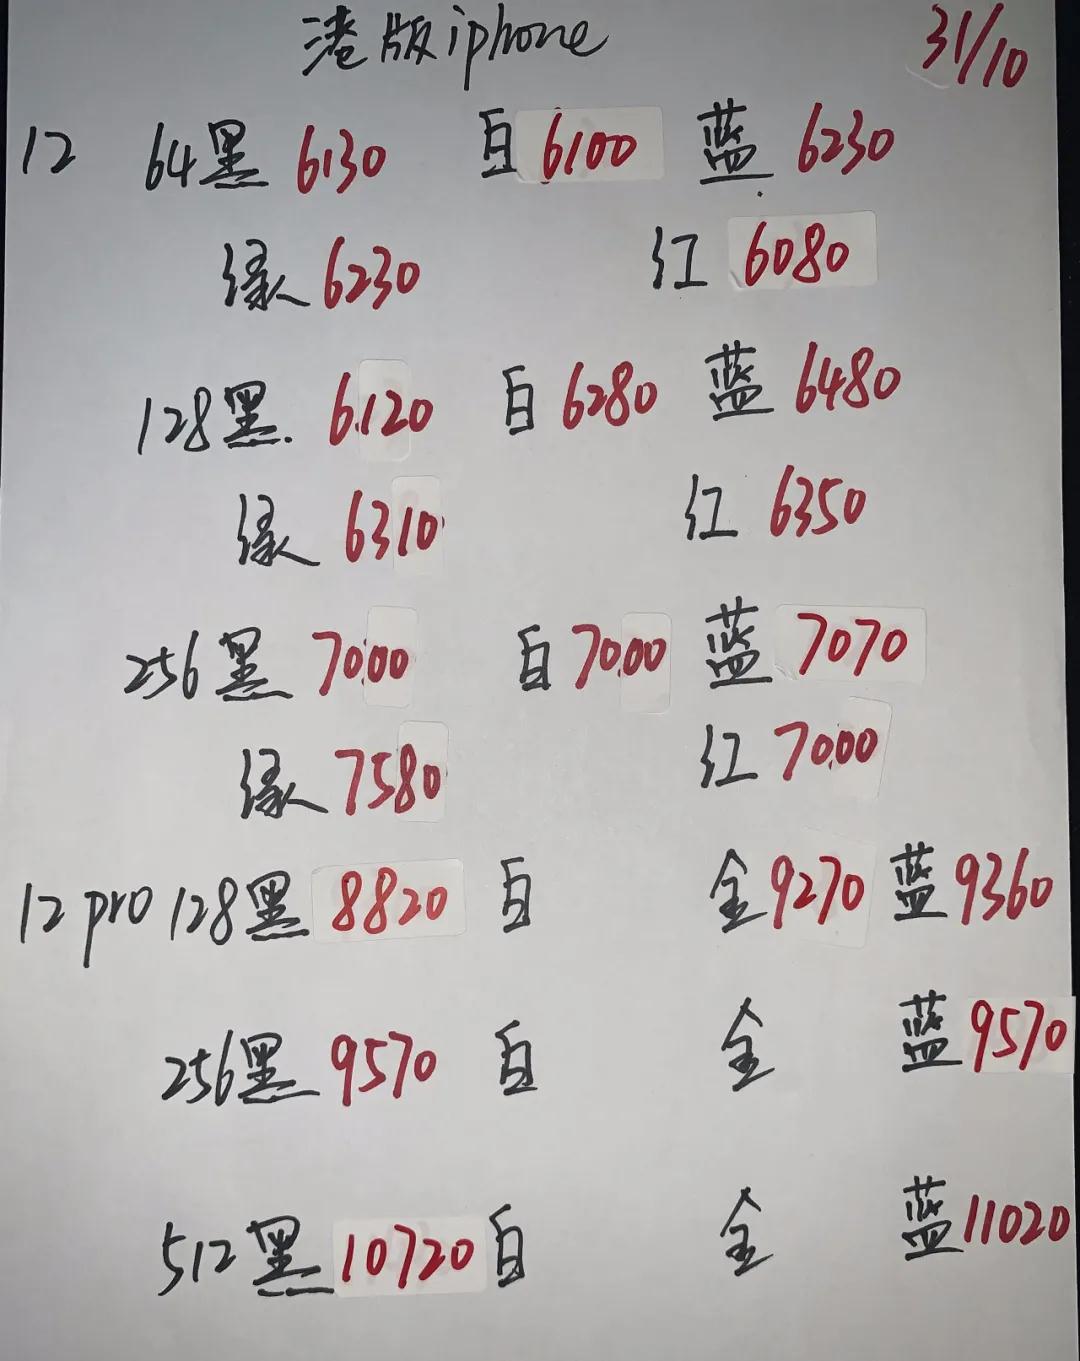 港版iphone 31/10
12 64黑 6130 白 6100 蓝 6230
绿 6230 红 6080
128黑. 6120 白 6280 蓝 6480
绿 6310 红 6350
256黑 7000 白 7000 蓝 7070
绿 7580 红 7000
12 pro 128黑 8820 白 金 9270 蓝 9360
256黑 9570 白 金 蓝 9570
512黑 10720 白 金 蓝 11020